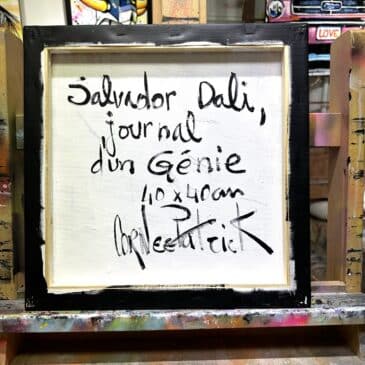 Salvador Dali,
journal
d'un Génie
40 x 40 cm
CORNEE PatricK
LOVE